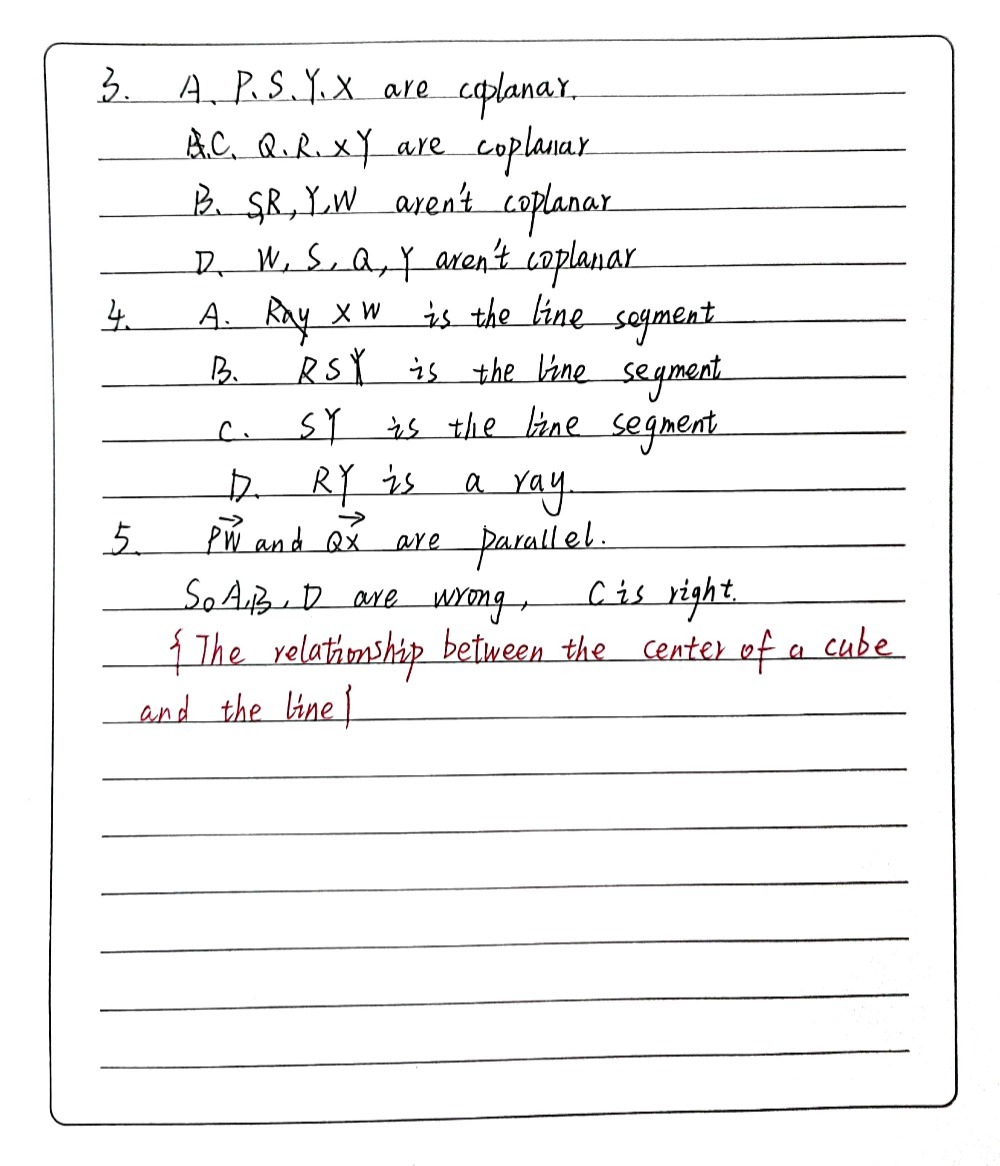 3. A. P. S. Y. X are coplanar.
C. Q. R. X Y are coplanar
B. S, R, Y, W aren't coplanar
D. W, S, Q, Y aren't coplanar
4. A. Ray X W is the line segment
B. R S Y is the line segment
C. S Y is the line segment
D. R Y is a ray.
5. PW⃗ and QX⃗ are parallel.
So A, B, D are wrong, C is right.
{ The relationship between the center of a cube
and the line }